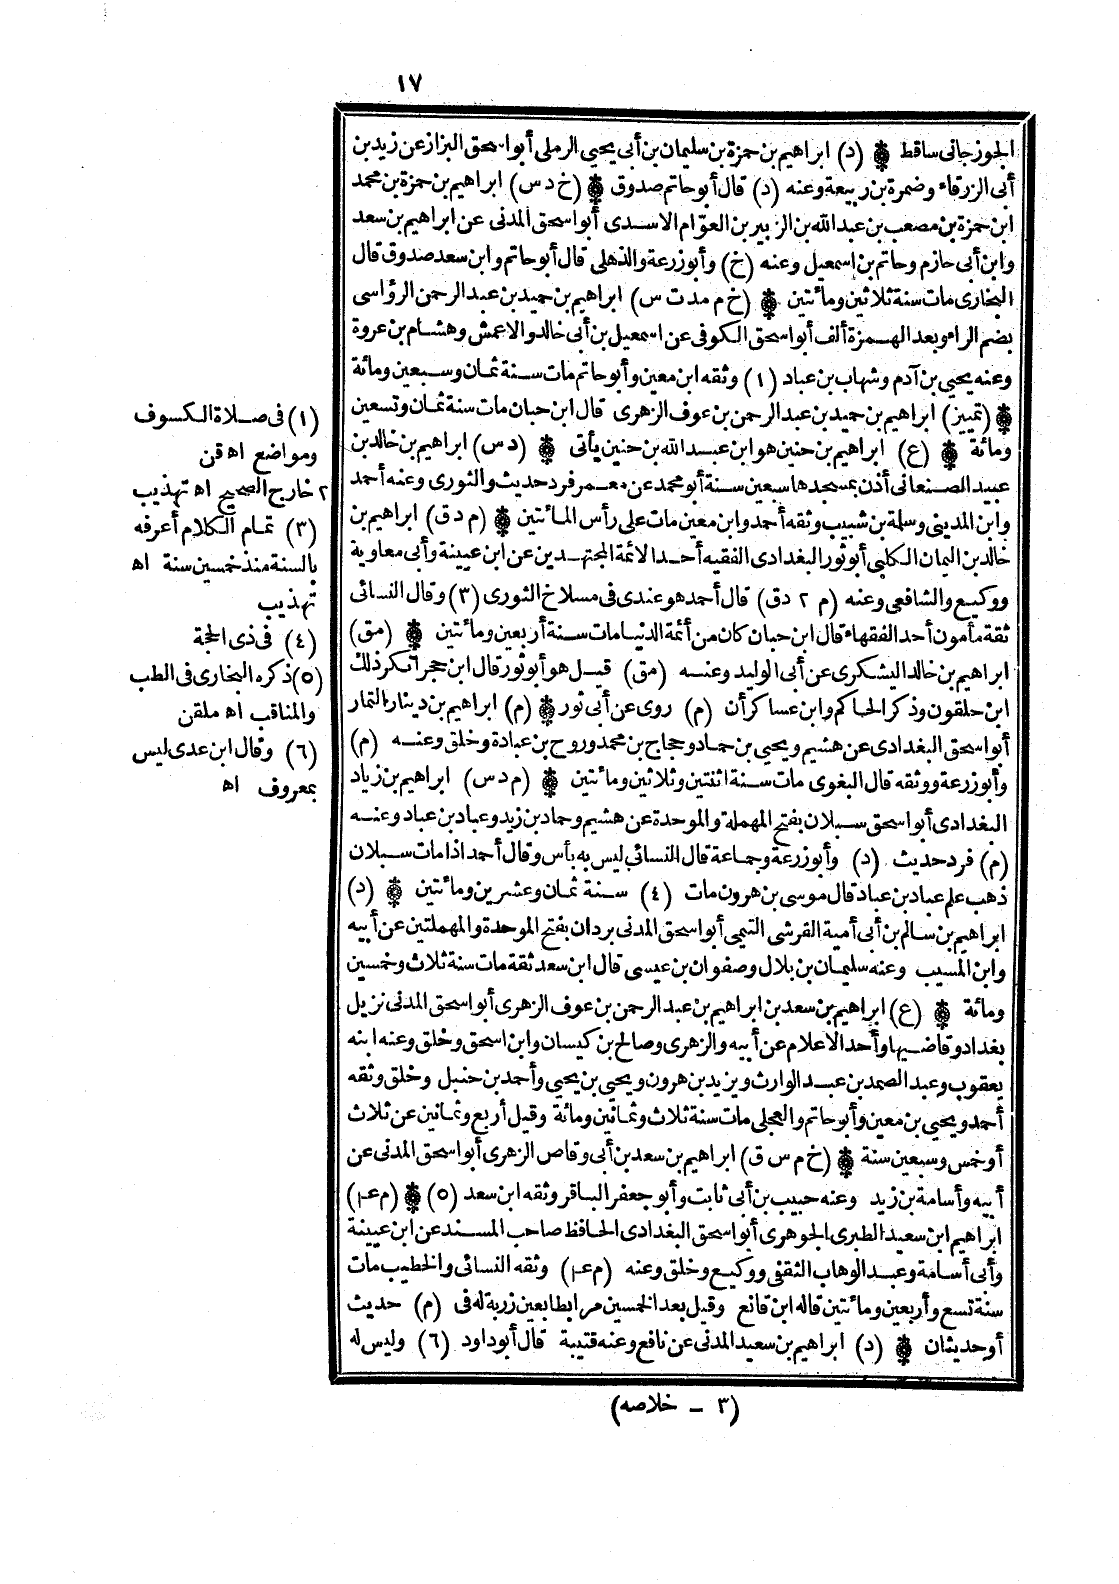 ١٧
الجوزجانى ساقط ❁ (د) ابراهيم بن حمزة بن سليمان بن أبى يحيى الرملى أبو اسحق البزاز عن زيد بن
أبى الزرقاء وضمرة بن ربيعة وعنه (د) قال أبو حاتم صدوق ❁ (خ د س) ابراهيم بن حمزة بن محمد
ابن حمزة بن مصعب بن عبد الله بن الزبير بن العوّام الاسدى أبو اسحق المدنى عن ابراهيم بن سعد
وابن أبى حازم وحاتم بن اسمعيل وعنه (خ) وأبو زرعة والذهلى قال أبو حاتم وابن سعد صدوق قال
البخارى مات سنة ثلاثين ومائتين ❁ (خ م مد ت س) ابراهيم بن حميد بن عبد الرحمن الرؤاسى
بضم الراء وبعد الهمزة ألف أبو اسحق الكوفى عن اسمعيل بن أبى خالد والاعمش وهشام بن عروة
وعنه يحيى بن آدم وشهاب بن عباد (١) وثقه ابن معين وأبو حاتم مات سنة ثمان وسبعين ومائة
❁ (تمييز) ابراهيم بن حميد بن عبد الرحمن بن عوف الزهرى قال ابن حبان مات سنة ثمان وتسعين
ومائة ❁ (ع) ابراهيم بن حنين هو ابن عبد الله بن حنين يأتى ❁ (د س) ابراهيم بن خالد بن
عبيد الصنعانى أذن بمسجدها سبعين سنة أبو محمد عن معمر فرد حديث والثورى وعنه أحمد
وابن المدينى وسلمة بن شبيب وثقه أحمد وابن معين مات على رأس المائتين ❁ (م د ق) ابراهيم بن
خالد بن اليمان الكلبى أبو ثور البغدادى الفقيه أحد الائمة المجتهدين عن ابن عيينة وأبى معاوية
ووكيع والشافعى وعنه (م ٢ د ق) قال أحمد هو عندى فى مسلاخ الثورى (٣) وقال النسائى
ثقة مأمون أحد الفقهاء قال ابن حبان كان من أئمة الدنيا مات سنة أربعين ومائتين ❁ (مق)
ابراهيم بن خالد اليشكرى عن أبى الوليد وعنه (مق) قيل هو أبو ثور قال ابن حجر أنكر ذلك
ابن خلقون وذكر الحاكم وابن عساكر أن (م) روى عن أبى ثور ❁ (م) ابراهيم بن دينار التمار
أبو اسحق البغدادى عن هشيم ويحيى بن حماد وحجاج بن محمد وروح بن عبادة وخلق وعنه (م)
وأبو زرعة ووثقه قال البغوى مات سنة اثنتين وثلاثين ومائتين ❁ (م د س) ابراهيم بن زياد
البغدادى أبو اسحق سبلان بفتح المهملة والموحدة عن هشيم وحماد بن زيد وعباد بن عباد وعنه
(م) فرد حديث (د) وأبو زرعة وجماعة قال النسائى ليس به بأس وقال أحمد اذا مات سبلان
ذهب علم عباد بن عباد قال موسى بن هرون مات (٤) سنة ثمان وعشرين ومائتين ❁ (د)
ابراهيم بن سالم بن أبى أمية القرشى التيمى أبو اسحق المدنى بردان بفتح الموحدة والمهملتين عن أبيه
وابن المسيب وعنه سليمان بن بلال وصفوان بن عيسى قال ابن سعد ثقة مات سنة ثلاث وخمسين
ومائة ❁ (ع) ابراهيم بن سعد بن ابراهيم بن عبد الرحمن بن عوف الزهرى أبو اسحق المدنى نزيل
بغداد وقاضيها وأحد الاعلام عن أبيه والزهرى وصالح بن كيسان وابن اسحق وخلق وعنه ابنه
يعقوب وعبد الصمد بن عبد الوارث ويزيد بن هرون ويحيى بن يحيى وأحمد بن حنبل وخلق وثقه
أحمد ويحيى بن معين وأبو حاتم والعجلى مات سنة ثلاث وثمانين ومائة وقيل أربع وثمانين عن ثلاث
أو خمس وسبعين سنة ❁ (خ م س ق) ابراهيم بن سعد بن أبى وقاص الزهرى أبو اسحق المدنى عن
أبيه وأسامة بن زيد وعنه حبيب بن أبى ثابت وأبو جعفر الباقر وثقه ابن سعد (٥) ❁ (م عـ)
ابراهيم ابن سعيد الطبرى الجوهرى أبو اسحق البغدادى الحافظ صاحب المسند عن ابن عيينة
وأبى أسامة وعبد الوهاب الثقفى ووكيع وخلق وعنه (م عـ) وثقه النسائى والخطيب مات
سنة تسع وأربعين ومائتين قاله ابن قانع وقيل بعد الخمسين مرابطا بعين زربة له فى (م) حديث
أو حديثان ❁ (د) ابراهيم بن سعيد المدنى عن نافع وعنه قتيبة قال أبو داود (٦) وليس له
(١) فى صلاة الكسوف
ومواضع اه قن
٢ خارج الصحيح اه تهذيب
(٣) تمام الكلام أعرفه
بالسنة منذ خمسين سنة اه
تهذيب
(٤) فى ذى الحجة
(٥) ذكره البخارى فى الطب
والمناقب اه ملقن
(٦) وقال ابن عدى ليس
بمعروف اه
(٣ ـ خلاصه)